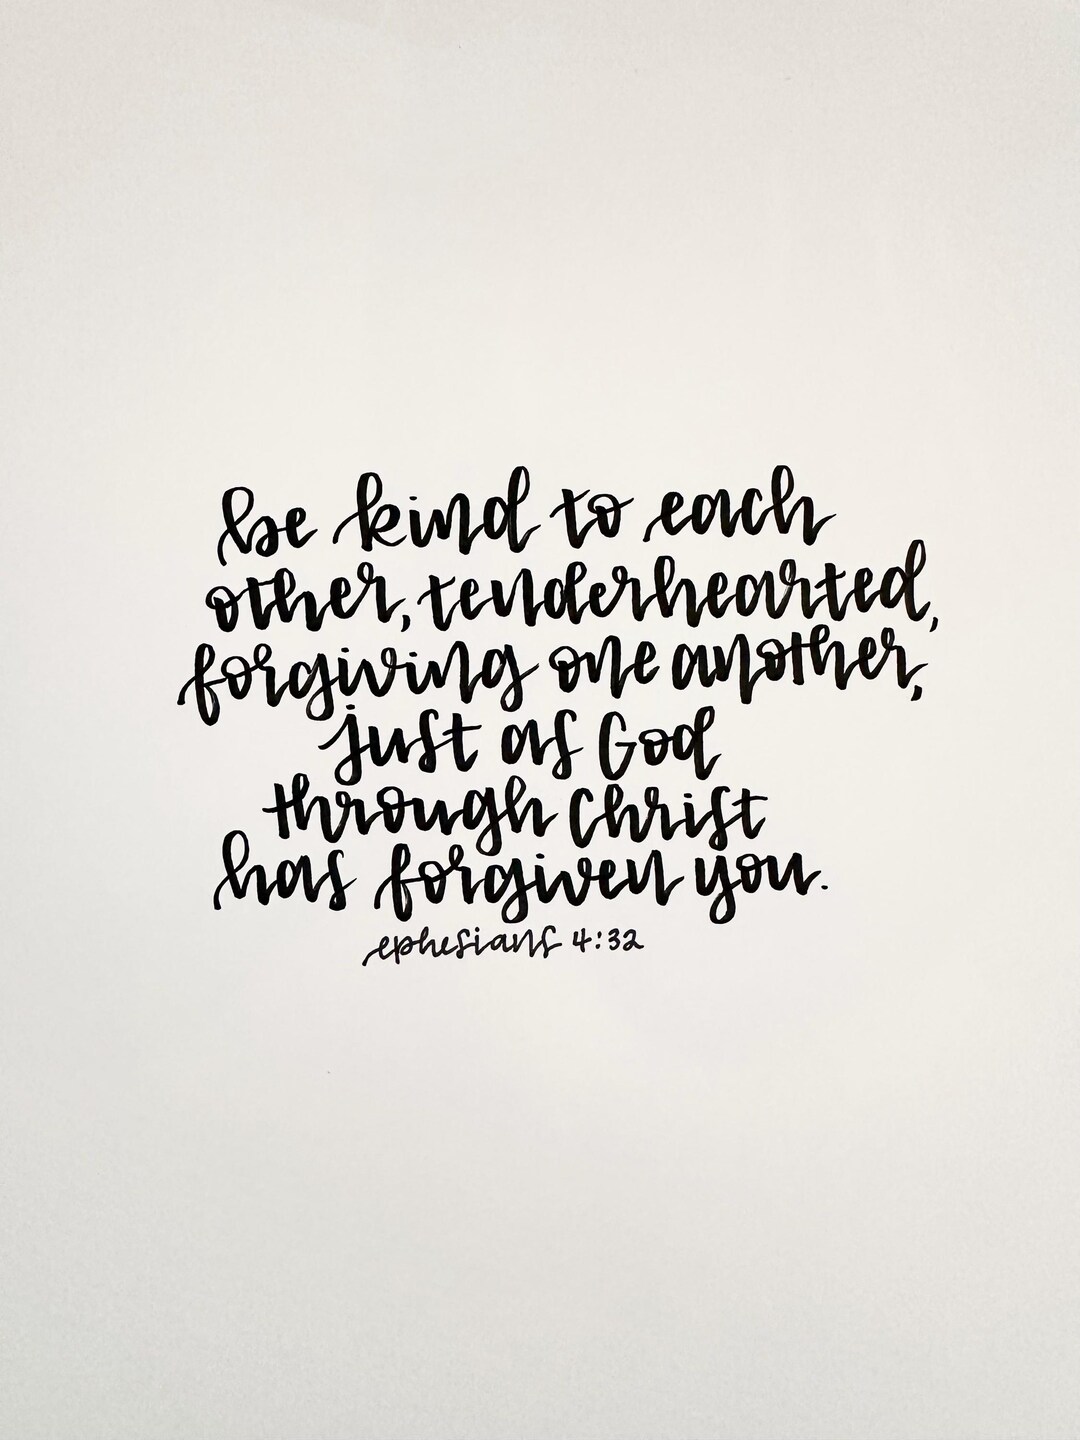 be kind to each
other, tenderhearted,
forgiving one another,
just as God
through Christ
has forgiven you.
ephesians 4:32